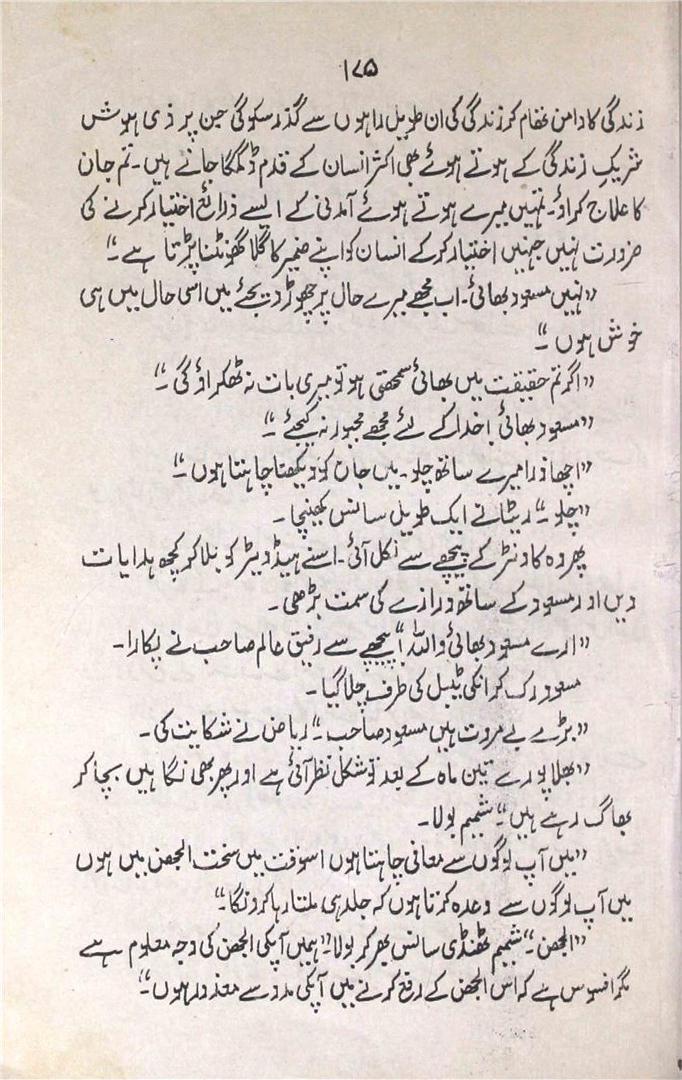 ۱۷۵
زندگی کا دامن تھام کر زندگی کی ان طویل راہوں سے گذر سکو گی جن پر ذی ہوش
شریکِ زندگی کے ہوتے ہوئے بھی اکثر انسان کے قدم ڈگمگا جاتے ہیں۔ تم جان
کا علاج کراؤ۔ تمہیں میرے ہوتے ہوئے آمدنی کے ایسے ذرائع اختیار کرنے کی
ضرورت نہیں جنہیں اختیار کر کے انسان کو اپنے ضمیر کا گلا گھونٹنا پڑتا ہے۔“
”نہیں مسعود بھائی۔ اب مجھے میرے حال پر چھوڑ دیجئے میں اسی حال میں ہی
خوش ہوں۔“
”اگر تم حقیقت میں بھائی سمجھتی ہو تو میری بات نہ ٹھکراؤ گی۔“
”مسعود بھائی! خدا کے لئے مجھے مجبور نہ کیجئے۔“
”اچھا ذرا میرے ساتھ چلو۔ میں جان کو دیکھنا چاہتا ہوں۔“
”چلو۔“ ریٹا نے ایک طویل سانس کھینچا۔
پھر وہ کاونٹر کے پیچھے سے نکل آئی۔ اسنے ہیڈ ویٹر کو بلا کر کچھ ہدایات
دیں اور مسعود کے ساتھ دروازے کی سمت بڑھی۔
”ارے مسعود بھائی واللہ!“ پیچھے سے رفیق عالم صاحب نے پکارا۔
مسعود رک کر انکی ٹیبل کی طرف چلا گیا۔
”بڑے بے مروت ہیں مسعود صاحب۔“ ریاض نے شکایت کی۔
”بھلا پورے تین ماہ کے بعد تو شکل نظر آئی ہے اور پھر بھی نگاہیں بچا کر
بھاگ رہے ہیں“ شمیم بولا۔
”میں آپ لوگوں سے معافی چاہتا ہوں اسوقت میں سخت الجھن میں ہوں
میں آپ لوگوں سے وعدہ کرتا ہوں کہ جلد ہی ملتا رہا کرونگا۔“
”الجھن۔“ شمیم ٹھنڈی سانس بھر کر بولا۔ ”ہمیں آپکی الجھن کی وجہ معلوم ہے
مگر افسوس ہے کہ اس الجھن کے رفع کرنے میں آپکی مدد سے معذور ہوں۔“